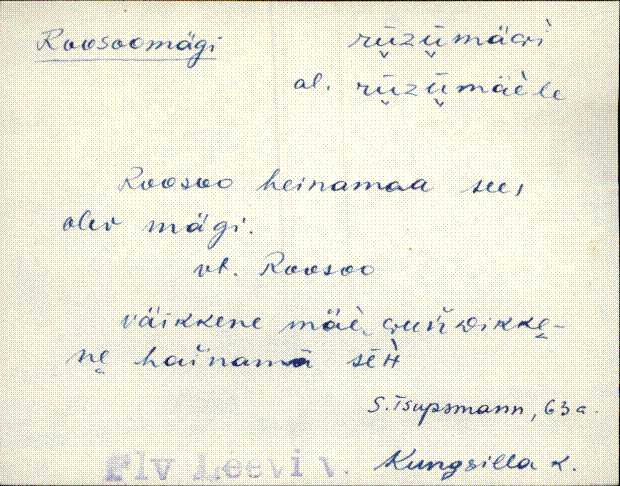 Roosoomägi
rūzūmäɢì
al. rūzūmäèle
Roosoo heinamaa sees
olev mägi.
vt. Roosoo
väikkene mäè
ne hainamā
S. Tsupsmann, 63 a.
Plv Leevi v. Kungsilla k.